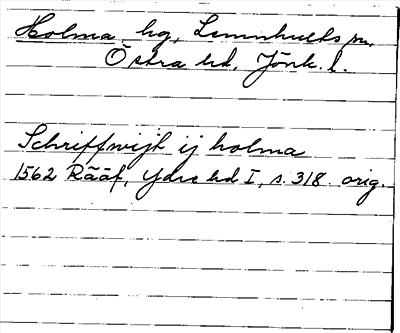 Holma hg, Lemnhults sn,
Östra hd, Jönk. l.
Schriffwijk ij holma
1562 Rääf, Ydre hd I, s. 318. orig.